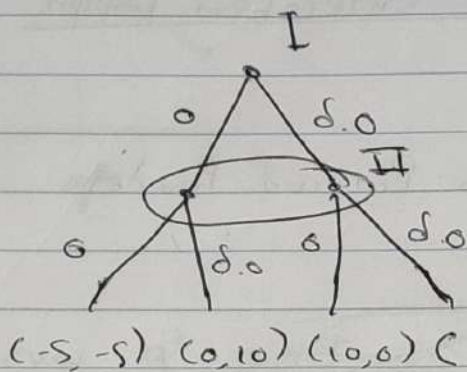 I
o d.o
II
o d.o o d.o
(-5, -5) (0, 10) (10, 0) (